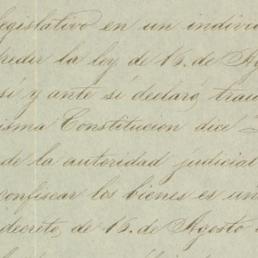 legislativo en un individ
peder la ley de 16. de Ag
sí y ante sí declara, trau
isma Constitucion dice
de la autoridad judicial
confiscar los bienes es un
decreto, de 16. de Agosto